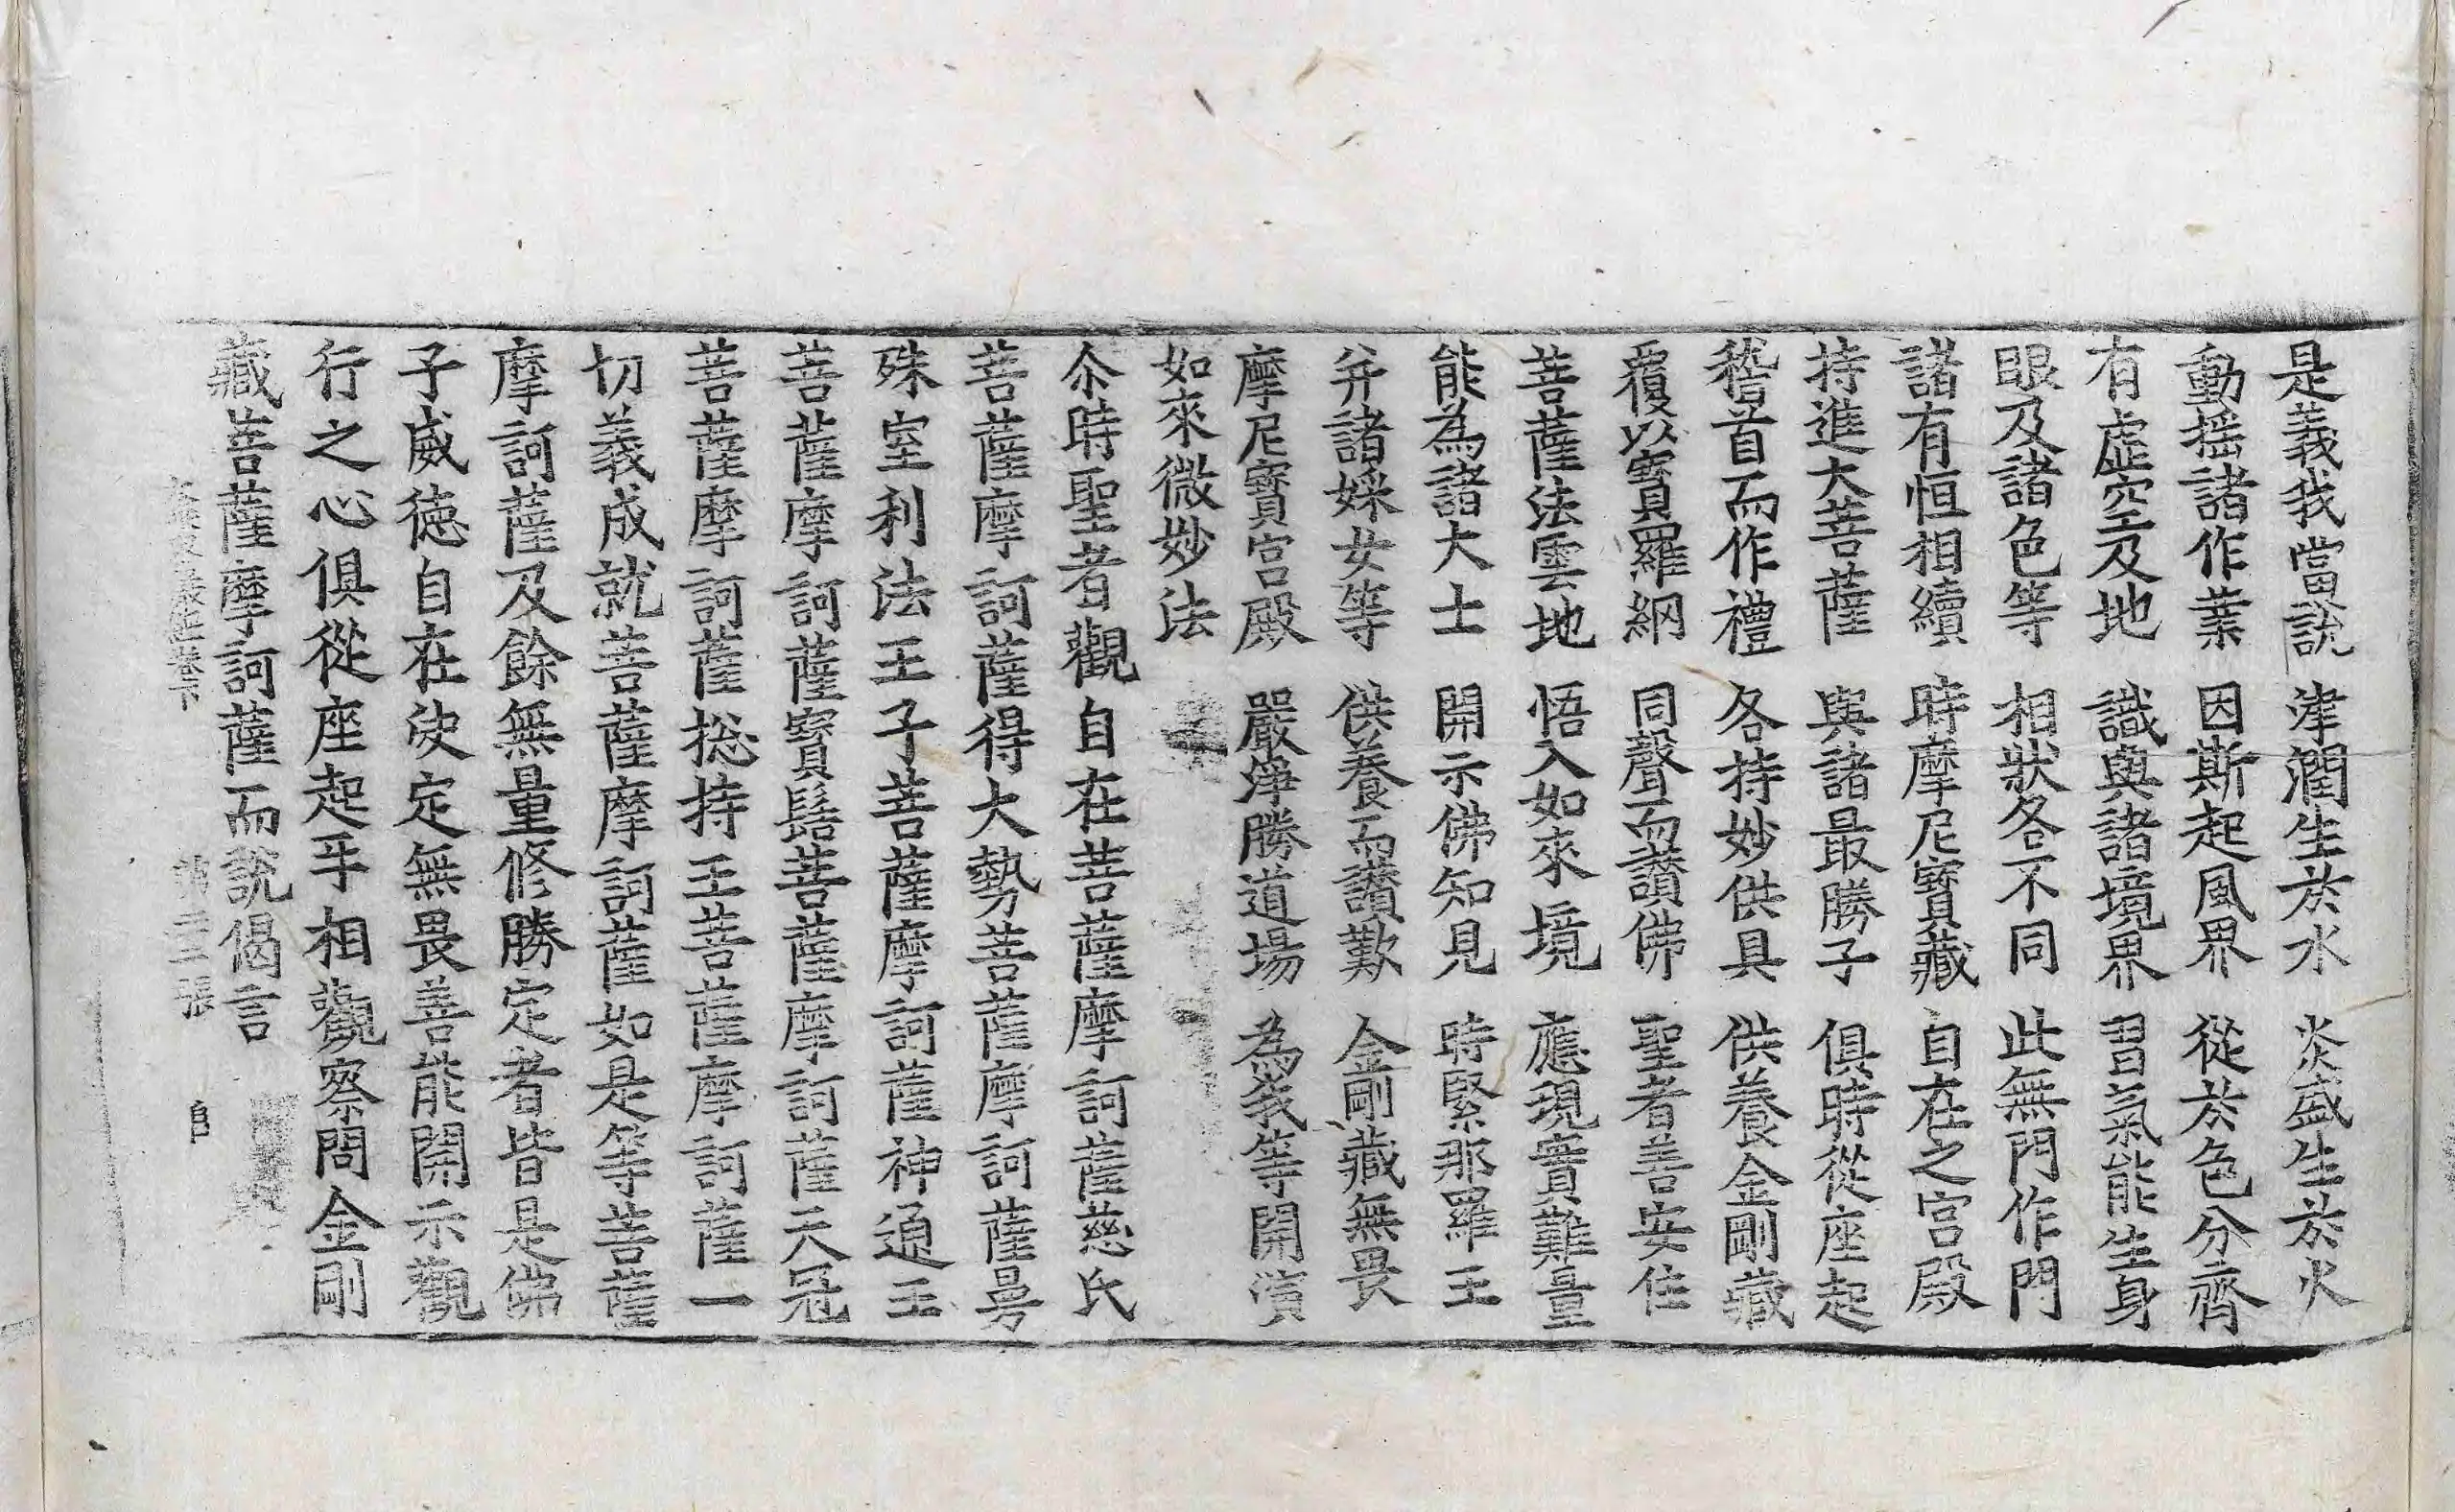 是義我當說　津潤生於水　炎盛生於火
動摇諸作業　因斯起風界　從於色分齊
有虛空及地　識與諸境界　習氣能生身
眼及諸色等　相狀各不同　此無門作門
諸有恒相續　時摩尼寶藏　自在之宫殿
持進大菩薩　與諸最勝子　俱時從座起
稽首而作禮　各持妙供具　供養金剛藏
覆以寶羅網　同聲而讚佛　聖者善安住
菩薩法雲地　悟入如來境　應現實難量
能為諸大士　開示佛知見　時緊那羅王
并諸婇女等　供養而讚歎　金剛藏無畏
摩尼寶宫殿　嚴淨勝道場　為我等開演
如來微妙法
尒時聖者觀自在菩薩摩訶薩慈氏
菩薩摩訶薩得大勢菩薩摩訶薩曼
殊室利法王子菩薩摩訶薩神通王
菩薩摩訶薩寶髻菩薩摩訶薩天冠
菩薩摩訶薩捴持王菩薩摩訶薩一
切義成就菩薩摩訶薩如是等菩薩
摩訶薩及餘無量修勝定者皆是佛
子威徳自在决定無畏善能開示觀
行之心俱從座起㸦相觀察問金剛
藏菩薩摩訶薩而說偈言
大乘密嚴經卷下　第二二張　自